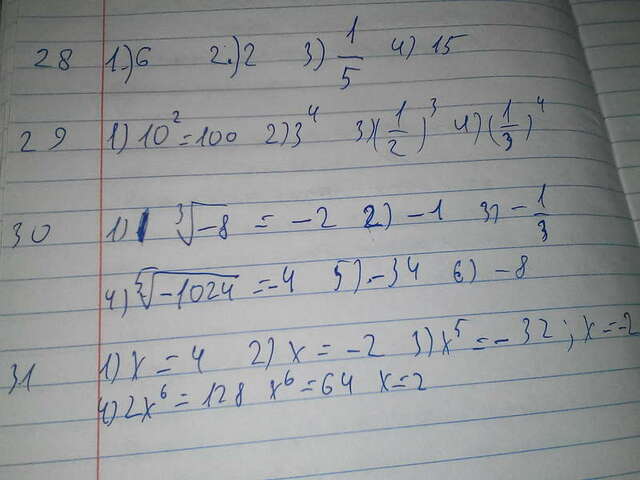 28 1.)6 2.)2 3) 1/5 4) 15
29 1) 10² = 100 2) 3⁴ 3) (1/2)³ 4) (1/3)⁴
30 1) ³√-8 = -2 2) -1 3) -1/3
4) ⁵√-1024 = -4 5) -34 6) -8
31 1) x = 4 2) x = -2 3) x⁵ = -32; x = -2
4) 2x⁶ = 128 x⁶ = 64 x = 2